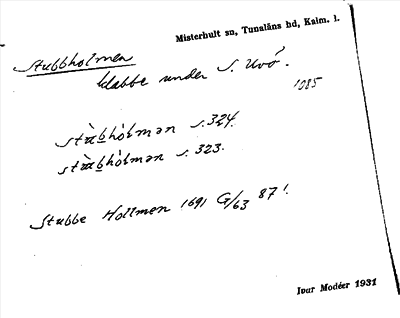 Misterhult sn, Tunaläns hd, Kalm. l.
Stubbholmen
klabbe under S. Uvö.
1085
stùbhòlmən s. 324.
stùbhòlmən s. 323.
Stubbe Hollmen 1691 G/63 87!
Ivar Modéer 1931